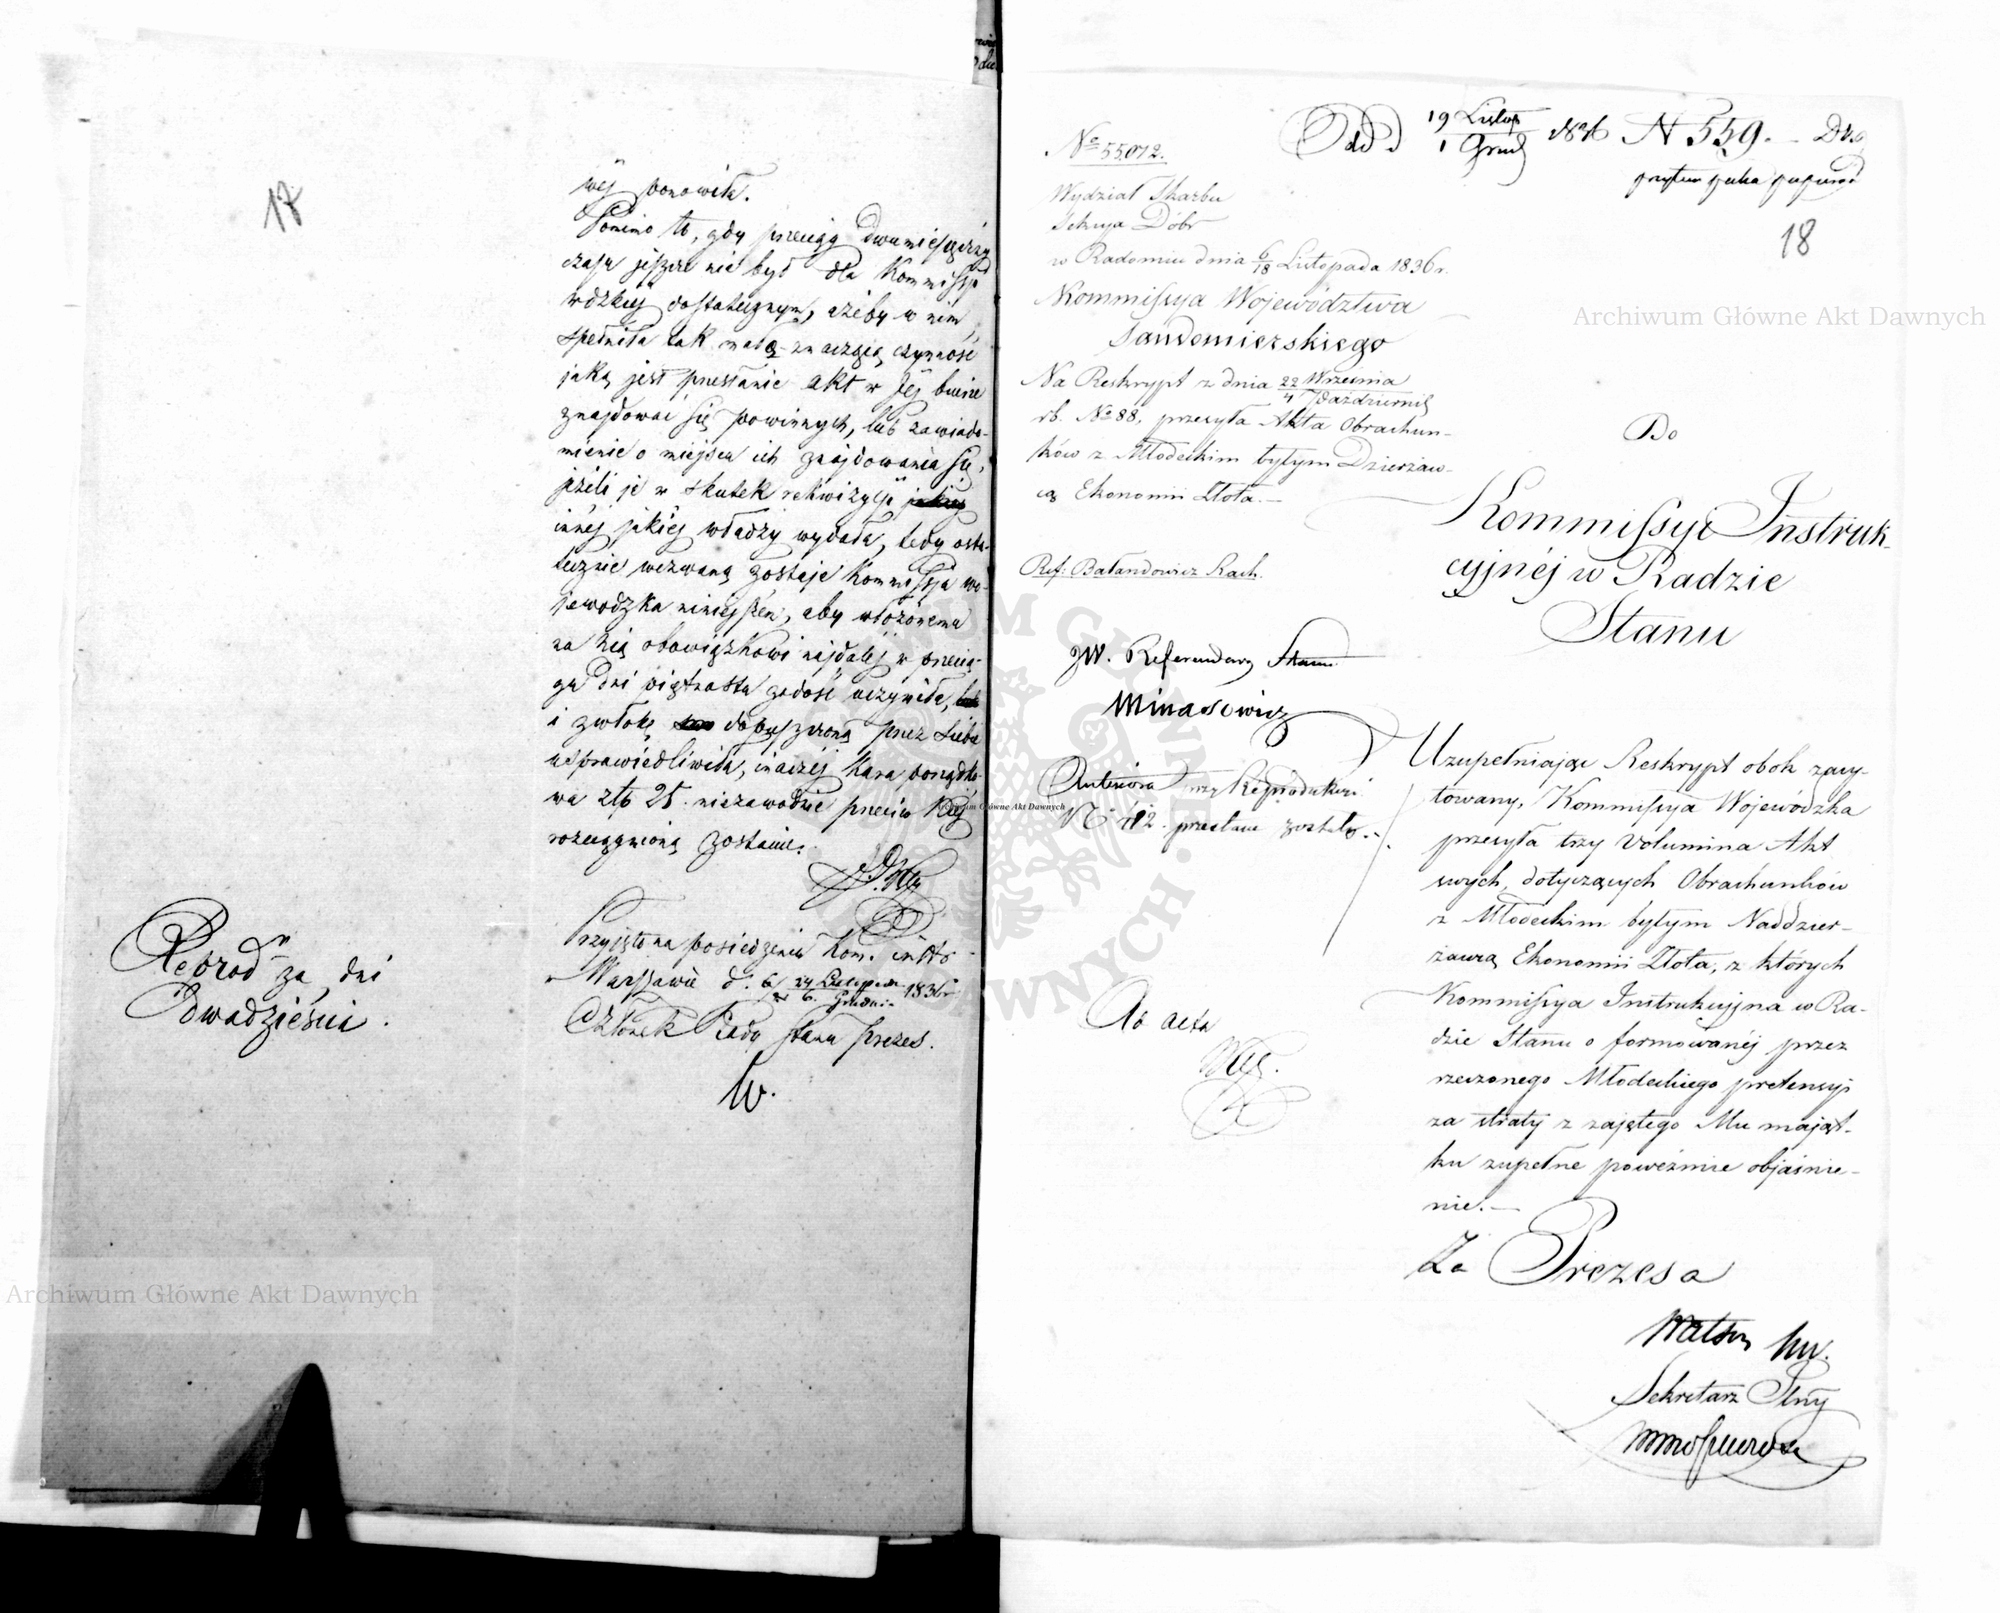 17
wéj ponowiła.
Pomimo to, gdy przeciąg dwumiesięczny
czasu jeszcze nie był dla Kommissji
wdzkiéj dostatecznym, ażeby w nim
spełniła tak mało znaczącą czynność
jaką jest przesłanie akt w Jéj biurze
znajdować się powinnych, lub zawiado-
mienie o miejscu ich znajdowania się,
jeżeli je w skutek rekwizycji
innéj jakiéj władzy wydała, tedy osta-
tecznie wezwaną zostaje Kommissja wo-
jewodzka niniejszem, aby włożonemu
na nią obowiązkowi najdaléj w przecią-
gu dni piętnastu zadość uczyniła,
i zwłokę dopuszczoną przez siebie
usprawiedliwiła, inaczéj kara porządko-
wa złp 25. niezawodnie przeciw Niéj
rozciągnioną zostanie.
Przyjęto na posiedzeniu Kom. instr
w Warszawie d. 24 Listopada 6. Grudnia 1836 r
Członek Rady Stanu Prezes.
W.
Reprod za dni
dwadzieścia.
No 55,012.
Wydział Skarbu
Sekcya Dóbr
w Radomiu dnia 6/18 Listopada 1836 r.
Kommissya Województwa
Sandomierskiego
Na Reskrypt z dnia 22 Września / 4 Październik
rb. No 88, przesyła Akta Obrachun-
ków z Młodeckim byłym Dzierżaw-
cą Ekonomii Złota.—
Ref: Batandowicz Rach.
JW. Referendarz Stanu
Minasowicz
Anteriora przy Reprodukcji
N. 112. przesłane zostały.
Ad acta
Odd 19 Listop / 1 Grud 1836 N 559.
18
Do
Kommissyi Instruk-
cyjnéj w Radzie
Stanu
Uzupełniając Reskrypt obok zacy-
towany, Kommissya Wojewódzka
przesyła trzy Volumina Akt
swych, dotyczących Obrachunków
z Młodeckim byłym Naddzier-
żawcą Ekonomii Złota, z których
Kommissya Instrukcyjna w Ra-
dzie Stanu o formowanéj przez
rzeczonego Młodeckiego pretensyi
za straty z zajętego Mu mająt-
ku zupełne poweźmie objaśnie-
nie.—
Za Prezesa
Sekretarz Jlny
Archiwum Główne Akt Dawnych
Archiwum Główne Akt Dawnych
Archiwum Główne Akt Dawnych